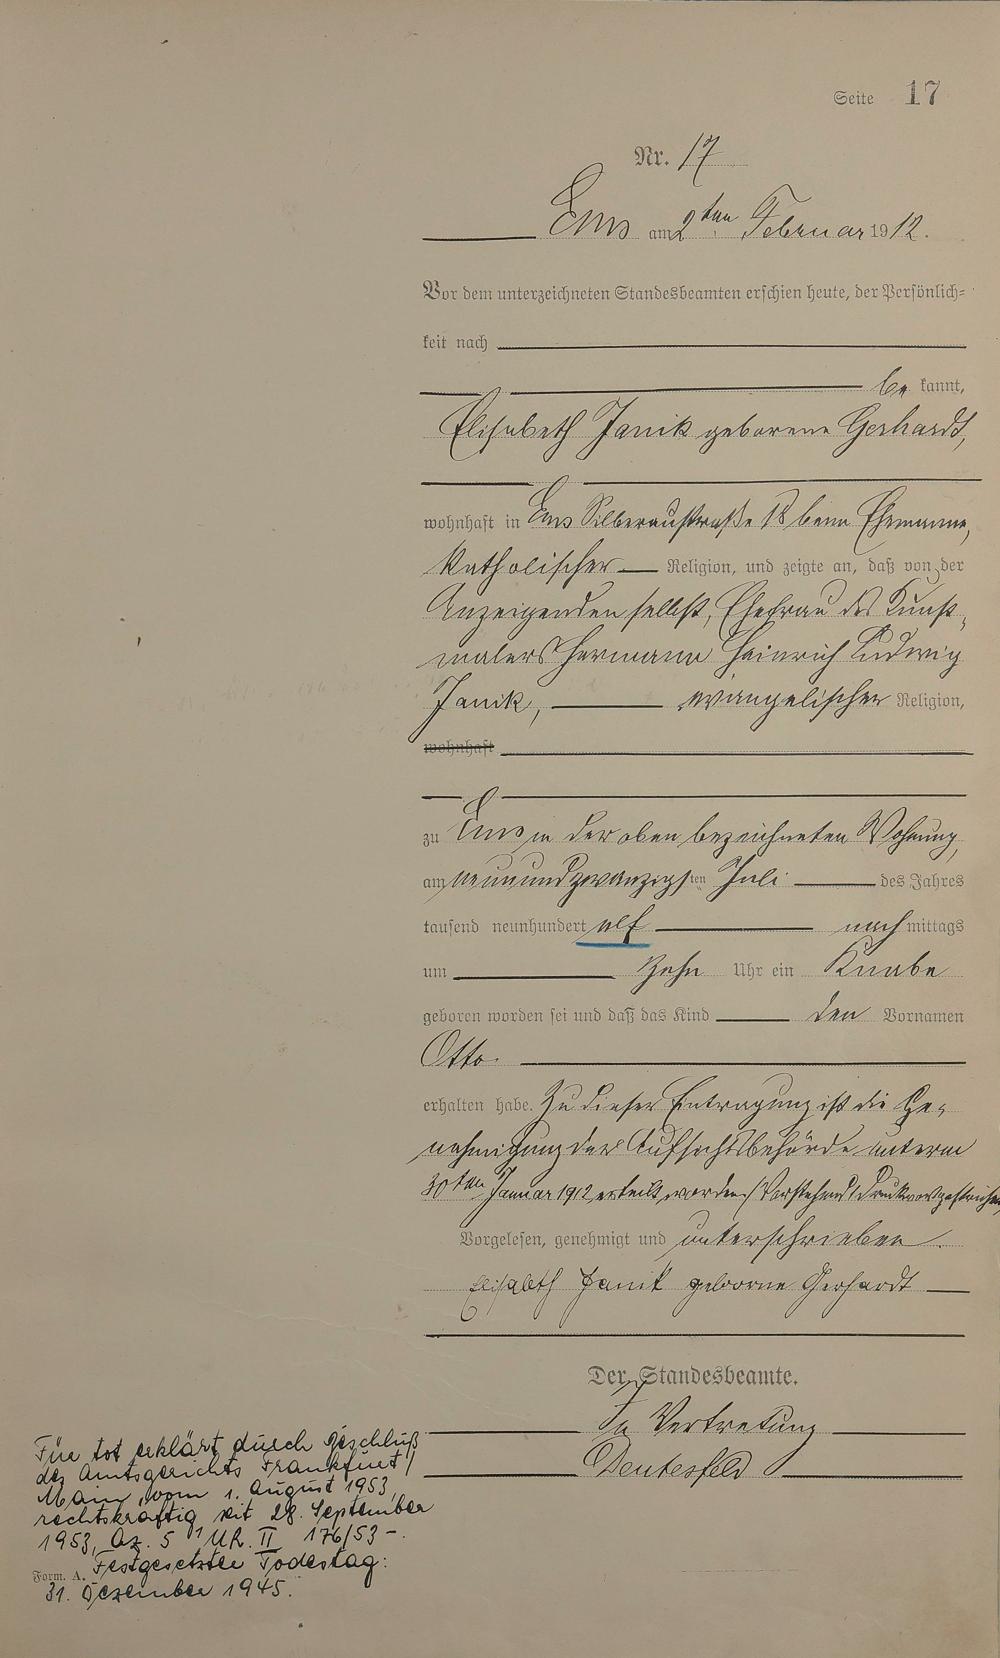 Seite 17
Nr. 17
Ems am 2ten Februar 1912.
Vor dem unterzeichneten Standesbeamten erschien heute, der Persönlich=
keit nach
be kannt,
Elisabeth Janik geborene Gerhardt,
wohnhaft in Ems Silberaustraße 18 beim Ehemanne,
katholischer Religion, und zeigte an, daß von der
Anzeigenden selbst, Ehefrau des Kunst-
malers Hermann Heinrich Ludwig
Janik, evangelischer Religion,
wohnhaft
zu Ems in der oben bezeichneten Wohnung,
am neunundzwanzigsten Juli des Jahres
tausend neunhundert elf nach mittags
um zehn Uhr ein Knabe
geboren worden sei und daß das Kind den Vornamen
Otto.
erhalten habe. Zu dieser Eintragung ist die Ge-
nehmigung der Aufsichtsbehörde unterm
30ten Januar 1912 erteilt worden. (Vorstehend 1 Druckwort gestrichen
Vorgelesen, genehmigt und unterschrieben.
Elisabeth Janik geborne Gerhardt
Der Standesbeamte.
In Vertretung
Deutesfeld
Für tot erklärt durch Beschluß
des Amtsgerichts Frankfurt/
Main, vom 1. August 1953,
rechtskräftig seit 28. September
1953, Az. 5 UR. II 176/53 -.
Festgesetzter Todestag:
Form. A.
31. Dezember 1945.